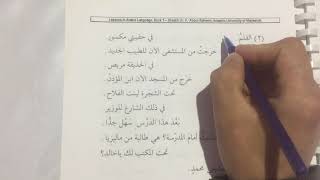 Lessons in Arabic Language, Book 1 - Shaikh Dr. V. Abdur-Raheem, Islamic University of Madeenah
(٢) القلمُ في حقيبتي مكسور.
خرجتْ من المستشفى الآن للطبيب الجديد.
في الحديقة مريض.
خرج من المسجد الآن ابن المؤذن.
تحت الشجرة لبنت الفلاح.
في ذلك الشارع للوزير.
بعد هذا الدرس سهل جدًّا.
أمام المدرسة؟ هي طالبة من ماليزيا.
تحت المكتب لك ياخالد؟
محمدٍ.